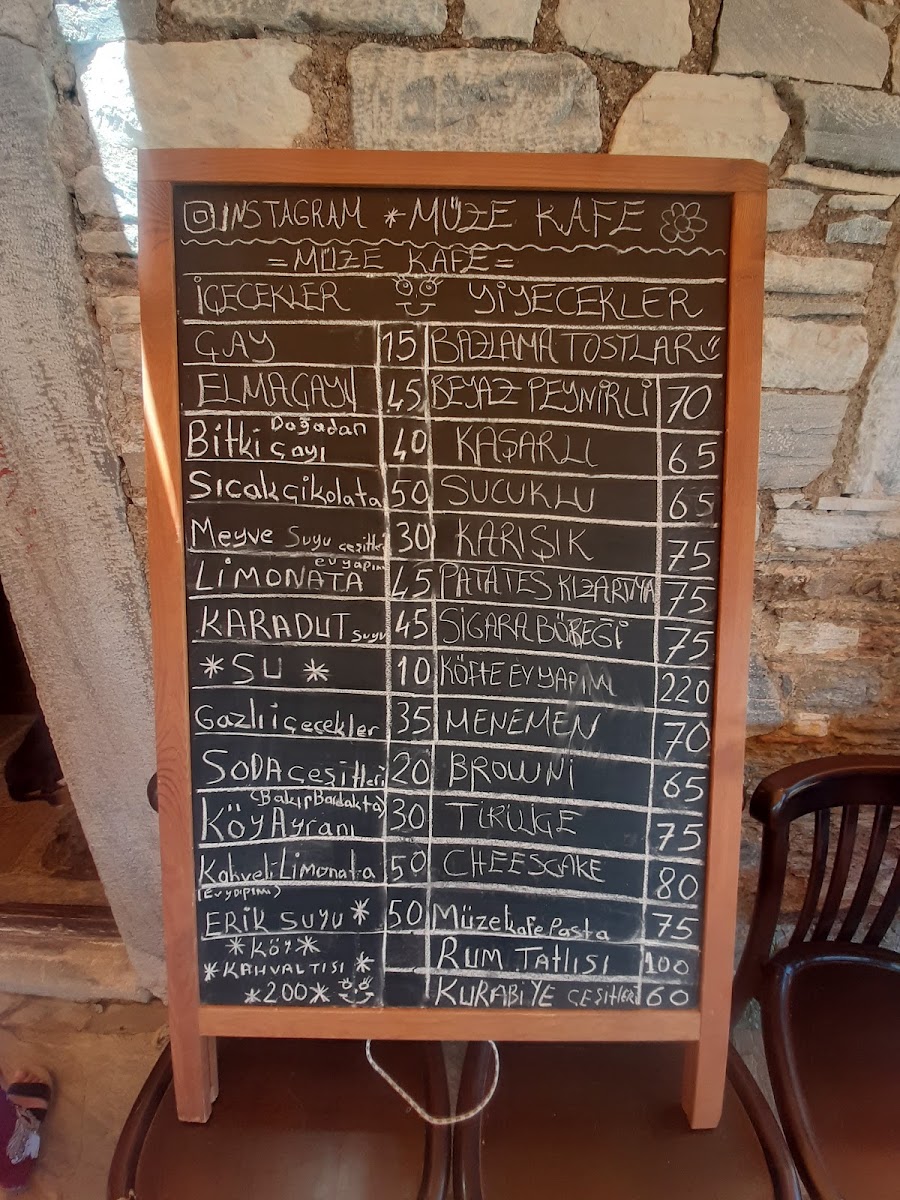 INSTAGRAM *MÜZE KAFE
=MÜZE KAFE=
İÇECEKLER YİYECEKLER
ÇAY 15
ELMAÇAYI 45
Doğadan
Bitki Çayı 40
Sıcak Çikolata 50
Meyve Suyu çeşitleri 30
ev yapımı
LİMONATA 45
KARADUT suyu 45
*SU* 10
Gazlı içecekler 35
SODA çeşitleri 20
(Bakır Bardakta)
Köy Ayranı 30
Kahveli Limonata 50
(Ev yapımı)
ERİK SUYU* 50
*KÖY*
*KAHVALTISI*
*200*
BAZLAMA TOSTLAR
BEYAZ PEYNİRLİ 70
KAŞARLI 65
SUCUKLU 65
KARIŞIK 75
PATATES KIZARTMA 75
SİGARA BÖREĞİ 75
KÖFTE EV YAPIMI 220
MENEMEN 70
BROWNİ 65
TİRİLİÇE 75
CHEESCAKE 80
Müzekafe Pasta 75
RUM TATLISI 100
KURABİYE ÇEŞİTLERİ 60